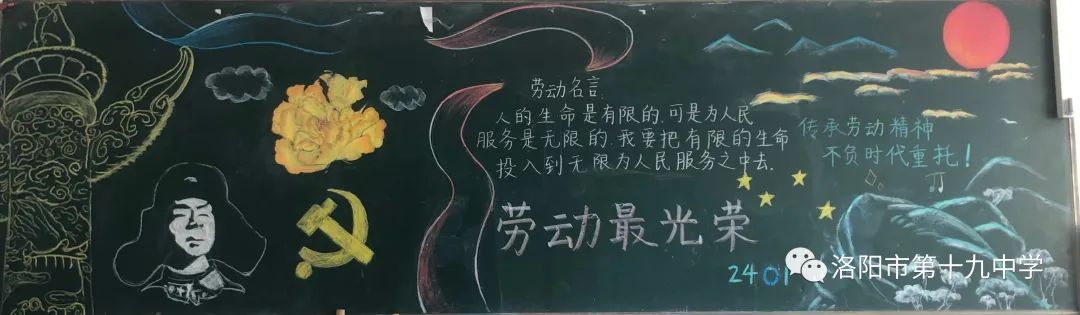 劳动名言
人的生命是有限的,可是为人民
服务是无限的,我要把有限的生命
投入到无限为人民服务之中去.
传承劳动精神
不负时代重托!
劳动最光荣
2401
洛阳市第十九中学